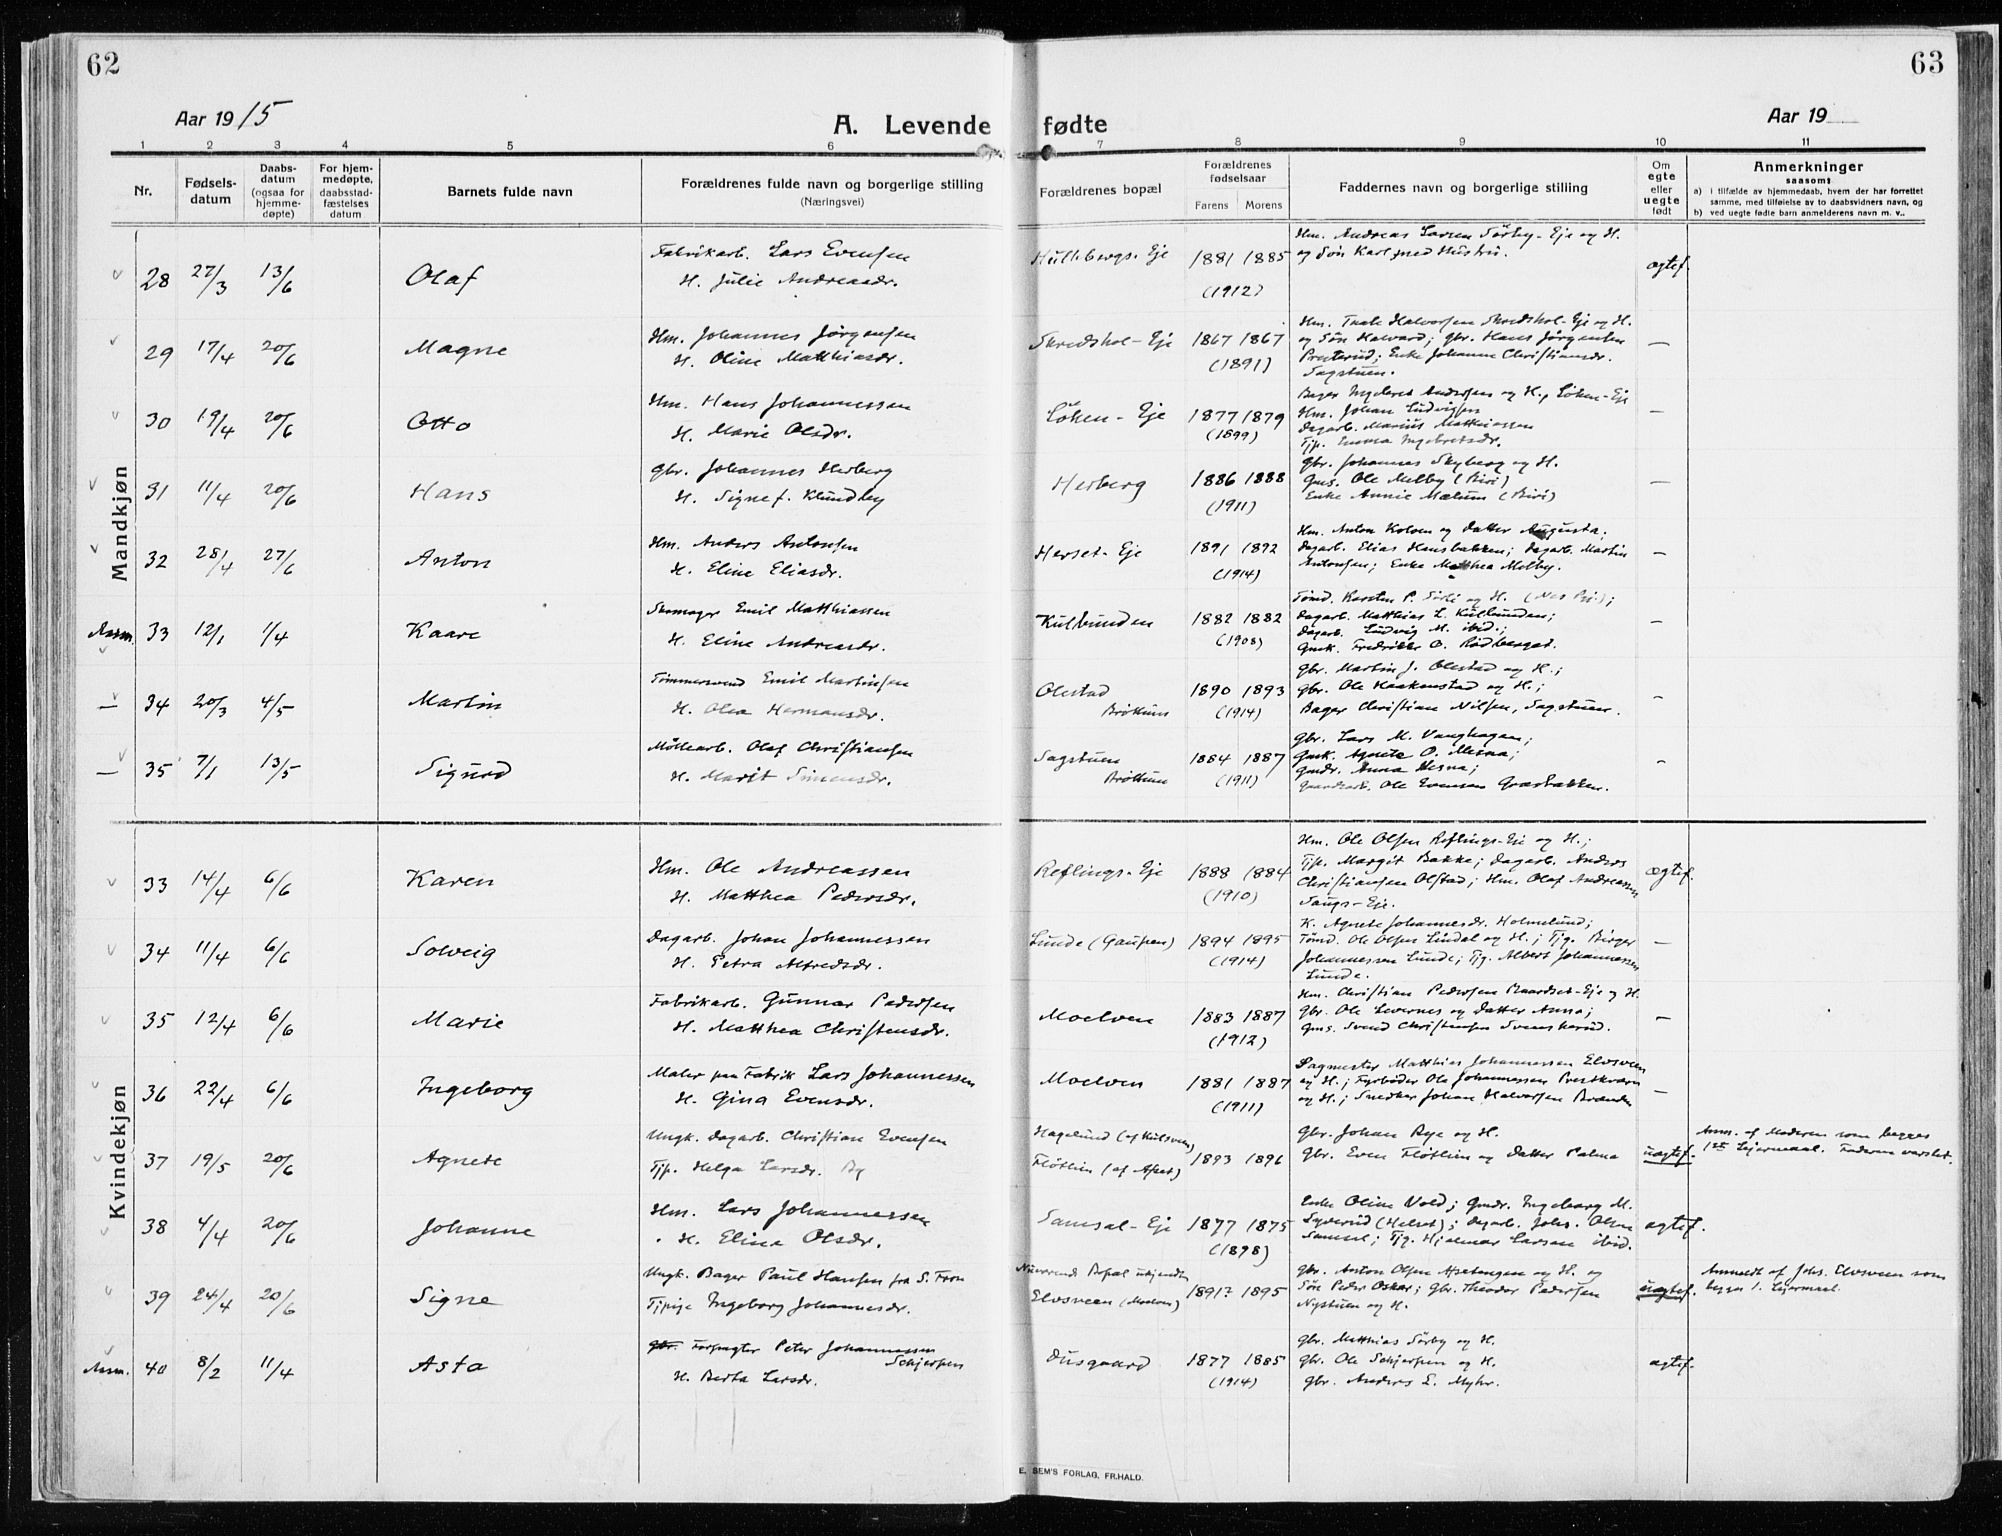 62
63
Aar 1915
A. Levende fødte
Aar 19
1 2 3 4 5 6 7 8 9 10 11
Nr.
Fødsels-
datum
Daabs-
datum
(ogsaa for
hjemme-
døpte)
For hjem-
medøpte,
daabsstad-
fæstelses
datum
Barnets fulde navn
Forældrenes fulde navn og borgerlige stilling
(Næringsvei)
Forældrenes bopæl
Forældrenes
fødselsaar
Farens Morens
Faddernes navn og borgerlige stilling
Om
egte
eller
uegte
født
Anmerkninger
saasom:
a) i tilfælde av hjemmedaab, hvem der har forrettet
samme, med tilføielse av to daabsvidners navn, og
b) ved uegte fødte barn anmelderens navn m. v..
Mandkjøn
28 27/3 13/6 Olaf
Fabrikarb. Lars Evensen
H. Julie Andreasdr.
Eje 1881 1885
(1912)
Hm. Andreas Larsen Sørby-Eje og H.
og Søn Karl med Hustru.
ægtef.
29 17/4 20/6 Magne
Hm. Johannes Jørgensen
H. Oline Matthiasdr.
Skredshol-Eje 1867 1867
(1891)
Hm. Halvorsen Skredshol-Eje og H.
og Søn Halvard; Gbr. Hans Jørgensen
Enke Johanne Christiansdr.
Sagstuen.
—
30 19/4 20/6 Otto
Hm. Hans Johannessen
H. Marie Olsdr.
Løken-Eje 1877 1879
(1899)
Bager Ingebret Andersen og H., Løken-Eje
Hm. Johan Ludvigsen
Dagarb. Marius Matthiassen
Tjp. Emma Ingebretsdr.
—
31 11/4 20/6 Hans
Gbr. Johannes Herberg
H. Signe f. Klundby
Herberg 1886 1888
(1911)
Gbr. Johannes Skyberg og H.
Gms. Ole Melby (Biri)
Enke Annie Mælum (Biri)
—
32 28/4 27/6 Anton
Hm. Anders Antonsen
H. Eline Eliasdr.
Herset-Eje 1891 1892
(1914)
Hm. Anton Kolven og Datter Augusta;
Dagarb. Elias Hansbakken; Dagarb. Martin
Antonsen; Enke Matthea Melby.
—
Anm. 33 12/1 1/4 Kaare
Skomager Emil Matthiassen
H. Eline Andreasdr.
Kulbunden 1882 1882
(1908)
Tømd. Karsten P. og H. (Nes);
Dagarb. Matthias L. Kulbunden;
Dagarb. Ludvig M. ibid.;
Gmk. Fredrikke O. Rødberget.
—
— 34 20/3 4/5 Martin
Tømmersvend Emil Martinsen
H. Olea Hermansdr.
Olestad
Brøttum
1890 1893
(1914)
Gbr. Martin J. Olestad og H.;
Gbr. Ole Haakenstad og H.;
Bager Christian Nilsen, Sagstuen.
—
— 35 7/1 13/5 Sigurd
Møllearb. Olaf Christiansen
H. Marit Simensdr.
Sagstuen
Brøttum
1884 1887
(1911)
Gbr. Lars M. Vanghagen;
Gmk. Agnete O. Mesna;
Gmdr. Anna Mesna;
Ole Evensen Græsbakken.
—
Kvindekjøn
33 14/4 6/6 Karen
Hm. Ole Andreassen
H. Matthea Pedersdr.
Reflings-Eje 1888 1884
(1910)
Hm. Ole Olsen Reflings-Eje og H.;
Tjp. Margit Bakke; Dagarb. Anders
Christiansen Olstad; Hm. Olaf Andreassen
Saugs-Eje.
ægtef.
34 11/4 6/6 Solveig
Dagarb. Johan Johannessen
H. Petra Alfredsdr.
Lunde (Gaupen) 1894 1895
(1914)
K. Agnete Johannesdr. Holmelund;
Tømd. Ole Olsen Lindal og H.; Tjg. Birger
Johannessen Lunde; Tjg. Albert Johannessen
Lunde.
—
35 12/4 6/6 Marie
Fabrikarb. Gunnar Pedersen
H. Matthea Christensdr.
Moelven 1883 1887
(1912)
Hm. Christian Pedersen Baardset-Eje og H.
Gbr. Ole Levernes og Datter Anna;
Gms. Svend Christensen Svenskerud.
—
36 22/4 6/6 Ingeborg
Maler paa Fabrik Lars Johannessen
H. Gina Evensdr.
Moelven 1881 1887
(1911)
Sagmester Matthias Johannessen Elvsveen
og H.; Fyrbøder Ole Johannessen Prestkværn
og H.; Snedker Johan Halvorsen
—
37 19/5 20/6 Agnete
Ungk. Dagarb. Christian Evensen
Tjp. Helga Larsdr.
Hagelund (af Kulsveen)
Fløtlien (af)
1893 1896
Gbr. Johan Bye og H.
Gbr. Even Fløtlien og Datter Palma
uægtef.
Anm. af Moderen som begges
1ste Lejermaal. Faderen varslet.
38 4/4 20/6 Johanne
Hm. Lars Johannessen
H. Elina Olsdr.
Samsal-Eje 1877 1875
(1898)
Enke Oline Vold; Gmdr. Ingeborg M.
Syverud (Helset); Dagarb. Johs. Olsen
Samsal; Tjg. Hjalmar Larsen ibid.
ægtef.
39 24/4 20/6 Signe
Ungk. Bager Paul Hansen fra S. Fron
Tjpige Ingeborg Johannesdr.
Nuværende Bopæl ukjendt
Elvsveen (Moelven)
1891? 1895
Gbr. Anton Olsen og H. og
Søn Peder Oskar; Gbr. Theodor Pedersen
Nystuen og H.
uægtef.
Anmeldt af Johs. Elvsveen som
begges 1. Lejermaal.
Anm. 40 8/2 11/4 Asta
Gbr. Forpagter Peter Johannessen
Schjerpen
H. Berta Larsdr.
Dusgaard 1877 1885
(1914)
Gbr. Matthias Sørby og H.
Gbr. Ole Schjerpen og H.
Gbr. Anders E. Myhr.
ægtef.
E. SEM'S FORLAG, FR.HALD.